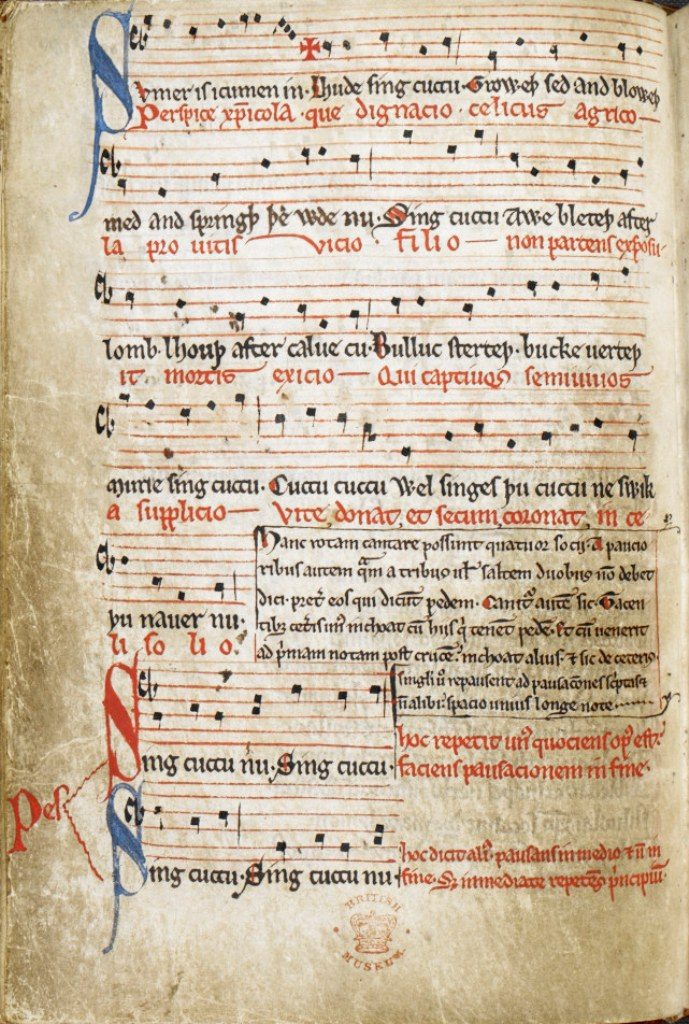 Sumer is icumen in. Lhude sing cuccu. Groweþ sed and bloweþ
Perspice xp̄icola. que dignacio. celicus agrico
med and springþ þe wde nu. Sing cuccu Awe bleteþ after
la pro uitis vicio. filio non parcens exposu-
lomb. lhouþ after calue cu. Bulluc sterteþ. bucke uerteþ
it mortis exicio Qui captiuos semiuiuos
murie sing cuccu. Cuccu cuccu Wel singes þu cuccu ne swik
a supplicio Vite donat, et secum coronat, in ce
þu nauer nu.
li so li o.
Hanc rotam cantare possunt quatuor socij. A paucio
ribus autem q̄m a tribus ul̄ saltem duobus nō debet
dici. pret̄ eos qui dicūt pedem. Canit᷑ autē sic. Tacen
tibȝ cet̄is un᷒ inchoat cū hiis q̇ tenēt pedē. Et cū uenerit
ad p̄mam notam post crucē. inchoat alius. ⁊ sic de ceteris.
singli u̓ repausent ad pausacōnes scriptas ⁊
n̄ alibi. spacio unius longe note.
Pes
Sing cuccu nu. Sing cuccu.
hoc repetit un᷒ quociens op᷒ est.
faciens pausacionem in fine.
Sing cuccu. Sing cuccu nu
hoc dicit ali᷒. pausans in medio ⁊ n̄ in
fine. Sꝫ inmediate repetēs p̓ncipiū.
BRITISH
MUSEUM